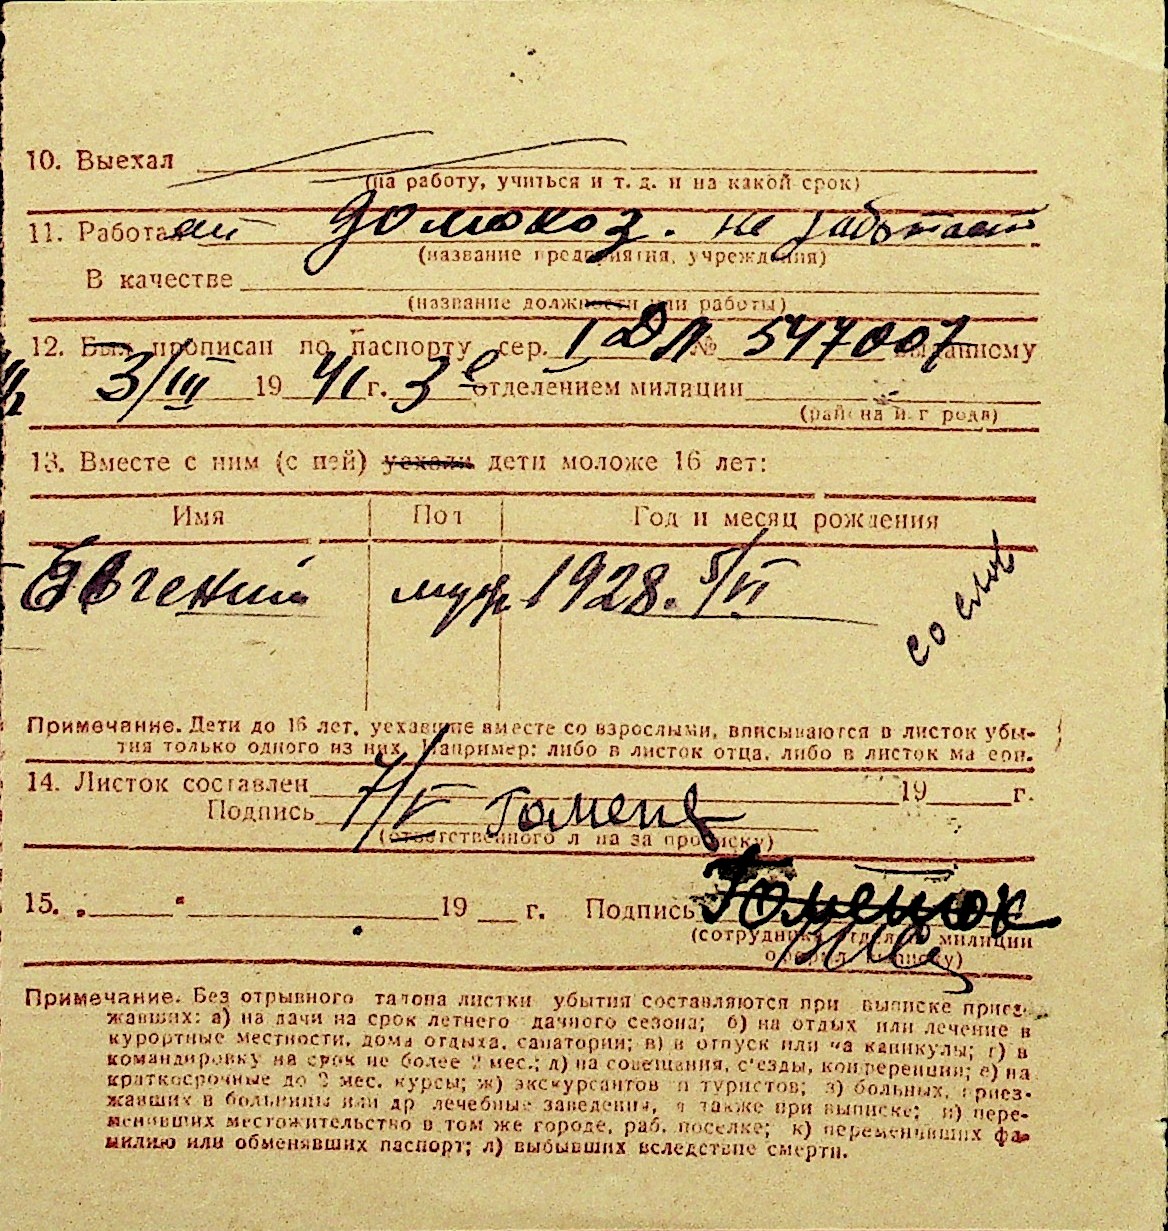 10. Выехал
(на работу, учиться и т. д. и на какой срок)
11. Работает домохоз. не работает
(название предприятия, учреждения)
В качестве
(название должности или работы)
12. Был прописан по паспорту сер. I ДЛ № 547007 выданному
3/III 19 41 г. 3 е отделением милиции
(района и города)
13. Вместе с ним (с ней) уехали дети моложе 16 лет:
Имя Пол Год и месяц рождения
Евгений муж 1928. 5/VI
со слов
Примечание. Дети до 16 лет, уехавшие вместе со взрослыми, вписываются в листок убы-
тия только одного из них. Например: либо в листок отца, либо в листок матери.
14. Листок составлен 7/V 19 г.
Подпись
(ответственного лица за прописку)
15. „ " 19 г. Подпись
(сотрудника отдела милиции
оформ. выписку)
Примечание. Без отрывного талона листки убытия составляются при выписке приез-
жавших: а) на дачи на срок летнего дачного сезона; б) на отдых или лечение в
курортные местности, дома отдыха, санатории; в) в отпуск или на каникулы; г) в
командировку на срок не более 2 мес.; д) на совещания, с'езды, конференции; е) на
краткосрочные до 2 мес. курсы; ж) экскурсантов и туристов; з) больных, приез-
жавших в больницы или др лечебные заведения, а также при выписке; и) пере-
менивших местожительство в том же городе, раб. поселке; к) переменивших фа-
милию или обменявших паспорт; л) выбывших вследствие смерти.